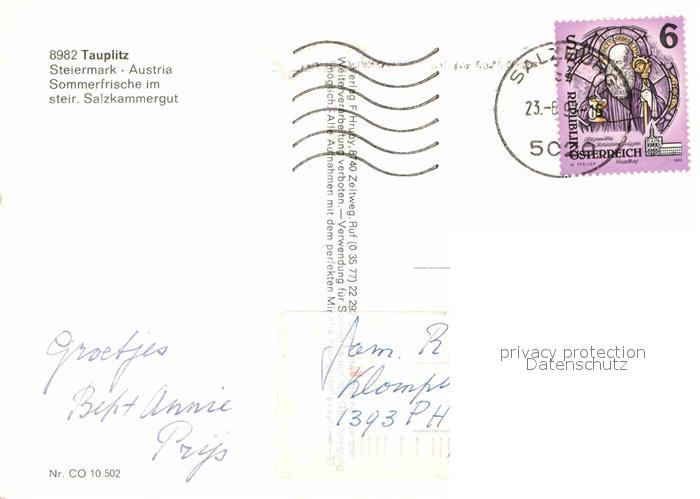 8982 Tauplitz
Steiermark · Austria
Sommerfrische im
steir. Salzkammergut
Verlag F. Hruby, 8740 Zeltweg, Ruf (0 35 77) 22 29
Weiterverarbeitung verboten. — Verwendung für S
möglich! Alle Aufnahmen mit dem perfekten Mi
SALZBURG
23.-6
502
6
REPUBLIK
ÖSTERREICH
Fam. R
Klomp
1393 PH
privacy protection
Datenschutz
Groetjes
Bep + Annie
Prijs
Nr. CO 10.502